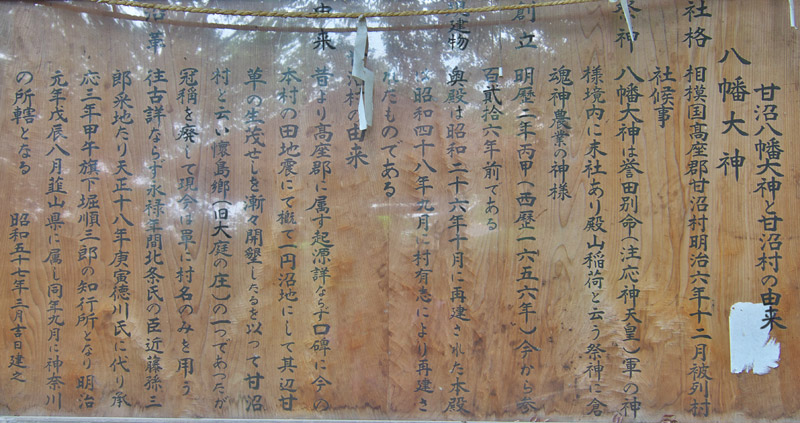 甘沼八幡大神と甘沼村の由来
八幡大神
社格 相模国高座郡甘沼村明治六年十二月被列村
社候事
祭神 八幡大神は誉田別命(注応神天皇)軍の神
様境内に末社あり殿山稲荷と云う祭神に倉
魂神農業の神様
創立 明歴二年丙甲(西歴一六五六年)今から参
百弐拾六年前である
建物 奥殿は昭和二十六年十月に再建された本殿
は昭和四十八年九月に村有志により再建さ
れたものである
村の由来
由来 昔より高座郡に属す起源詳ならず口碑に今の
本村の田地震にて概て一円沼地にして其辺甘
草の生茂せしを漸々開墾したるを以って甘沼
村と云い懐島郷(旧大庭の庄)の一つであったが
冠称を廃して現今は単に村名のみを用う
沿革 往古詳ならす永禄年間北条氏の臣近藤孫三
郎采地たり天正十八年庚寅徳川氏に代り承
応三年甲午旗下堀順三郎の知行所となり明治
元年戊辰八月韮山県に属し同年九月に神奈川
の所轄となる 昭和五十七年三月吉日建之